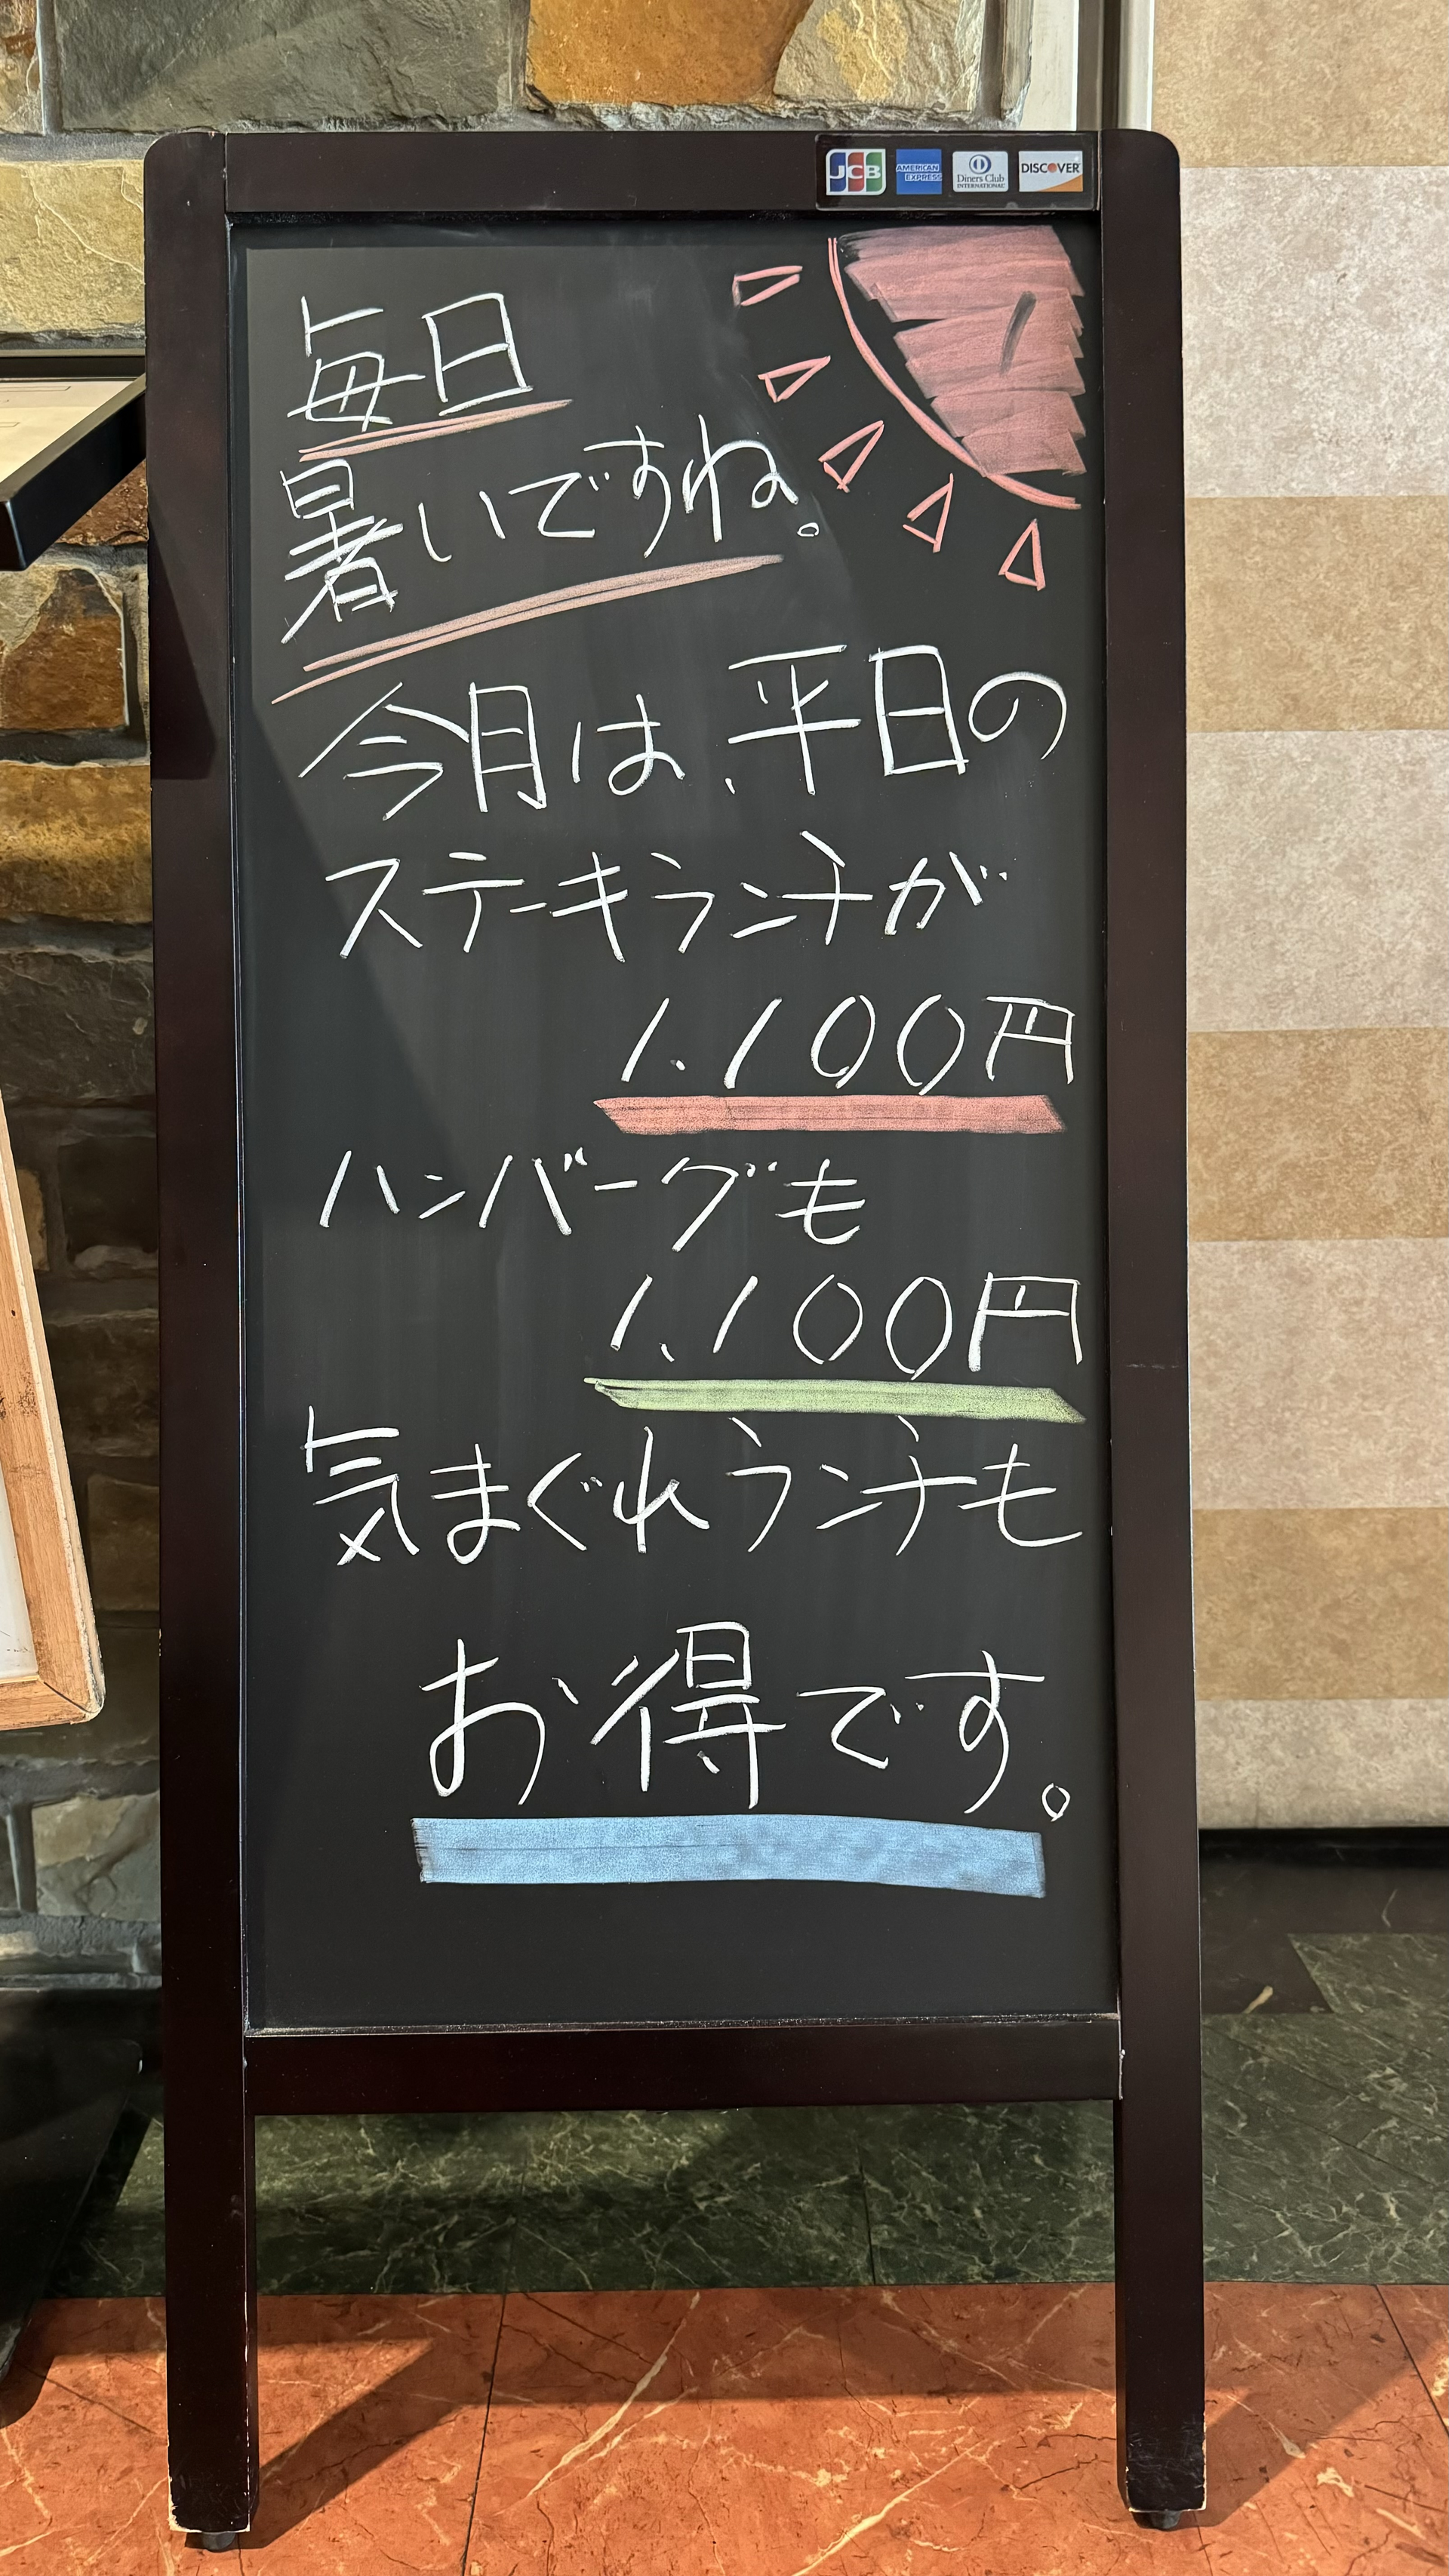 JCB AMERICAN EXPRESS Diners Club INTERNATIONAL DISCOVER
毎日
暑いですね。
今月は、平日の
ステーキランチが
1,100円
ハンバーグも
1,100円
気まぐれランチも
お得です。